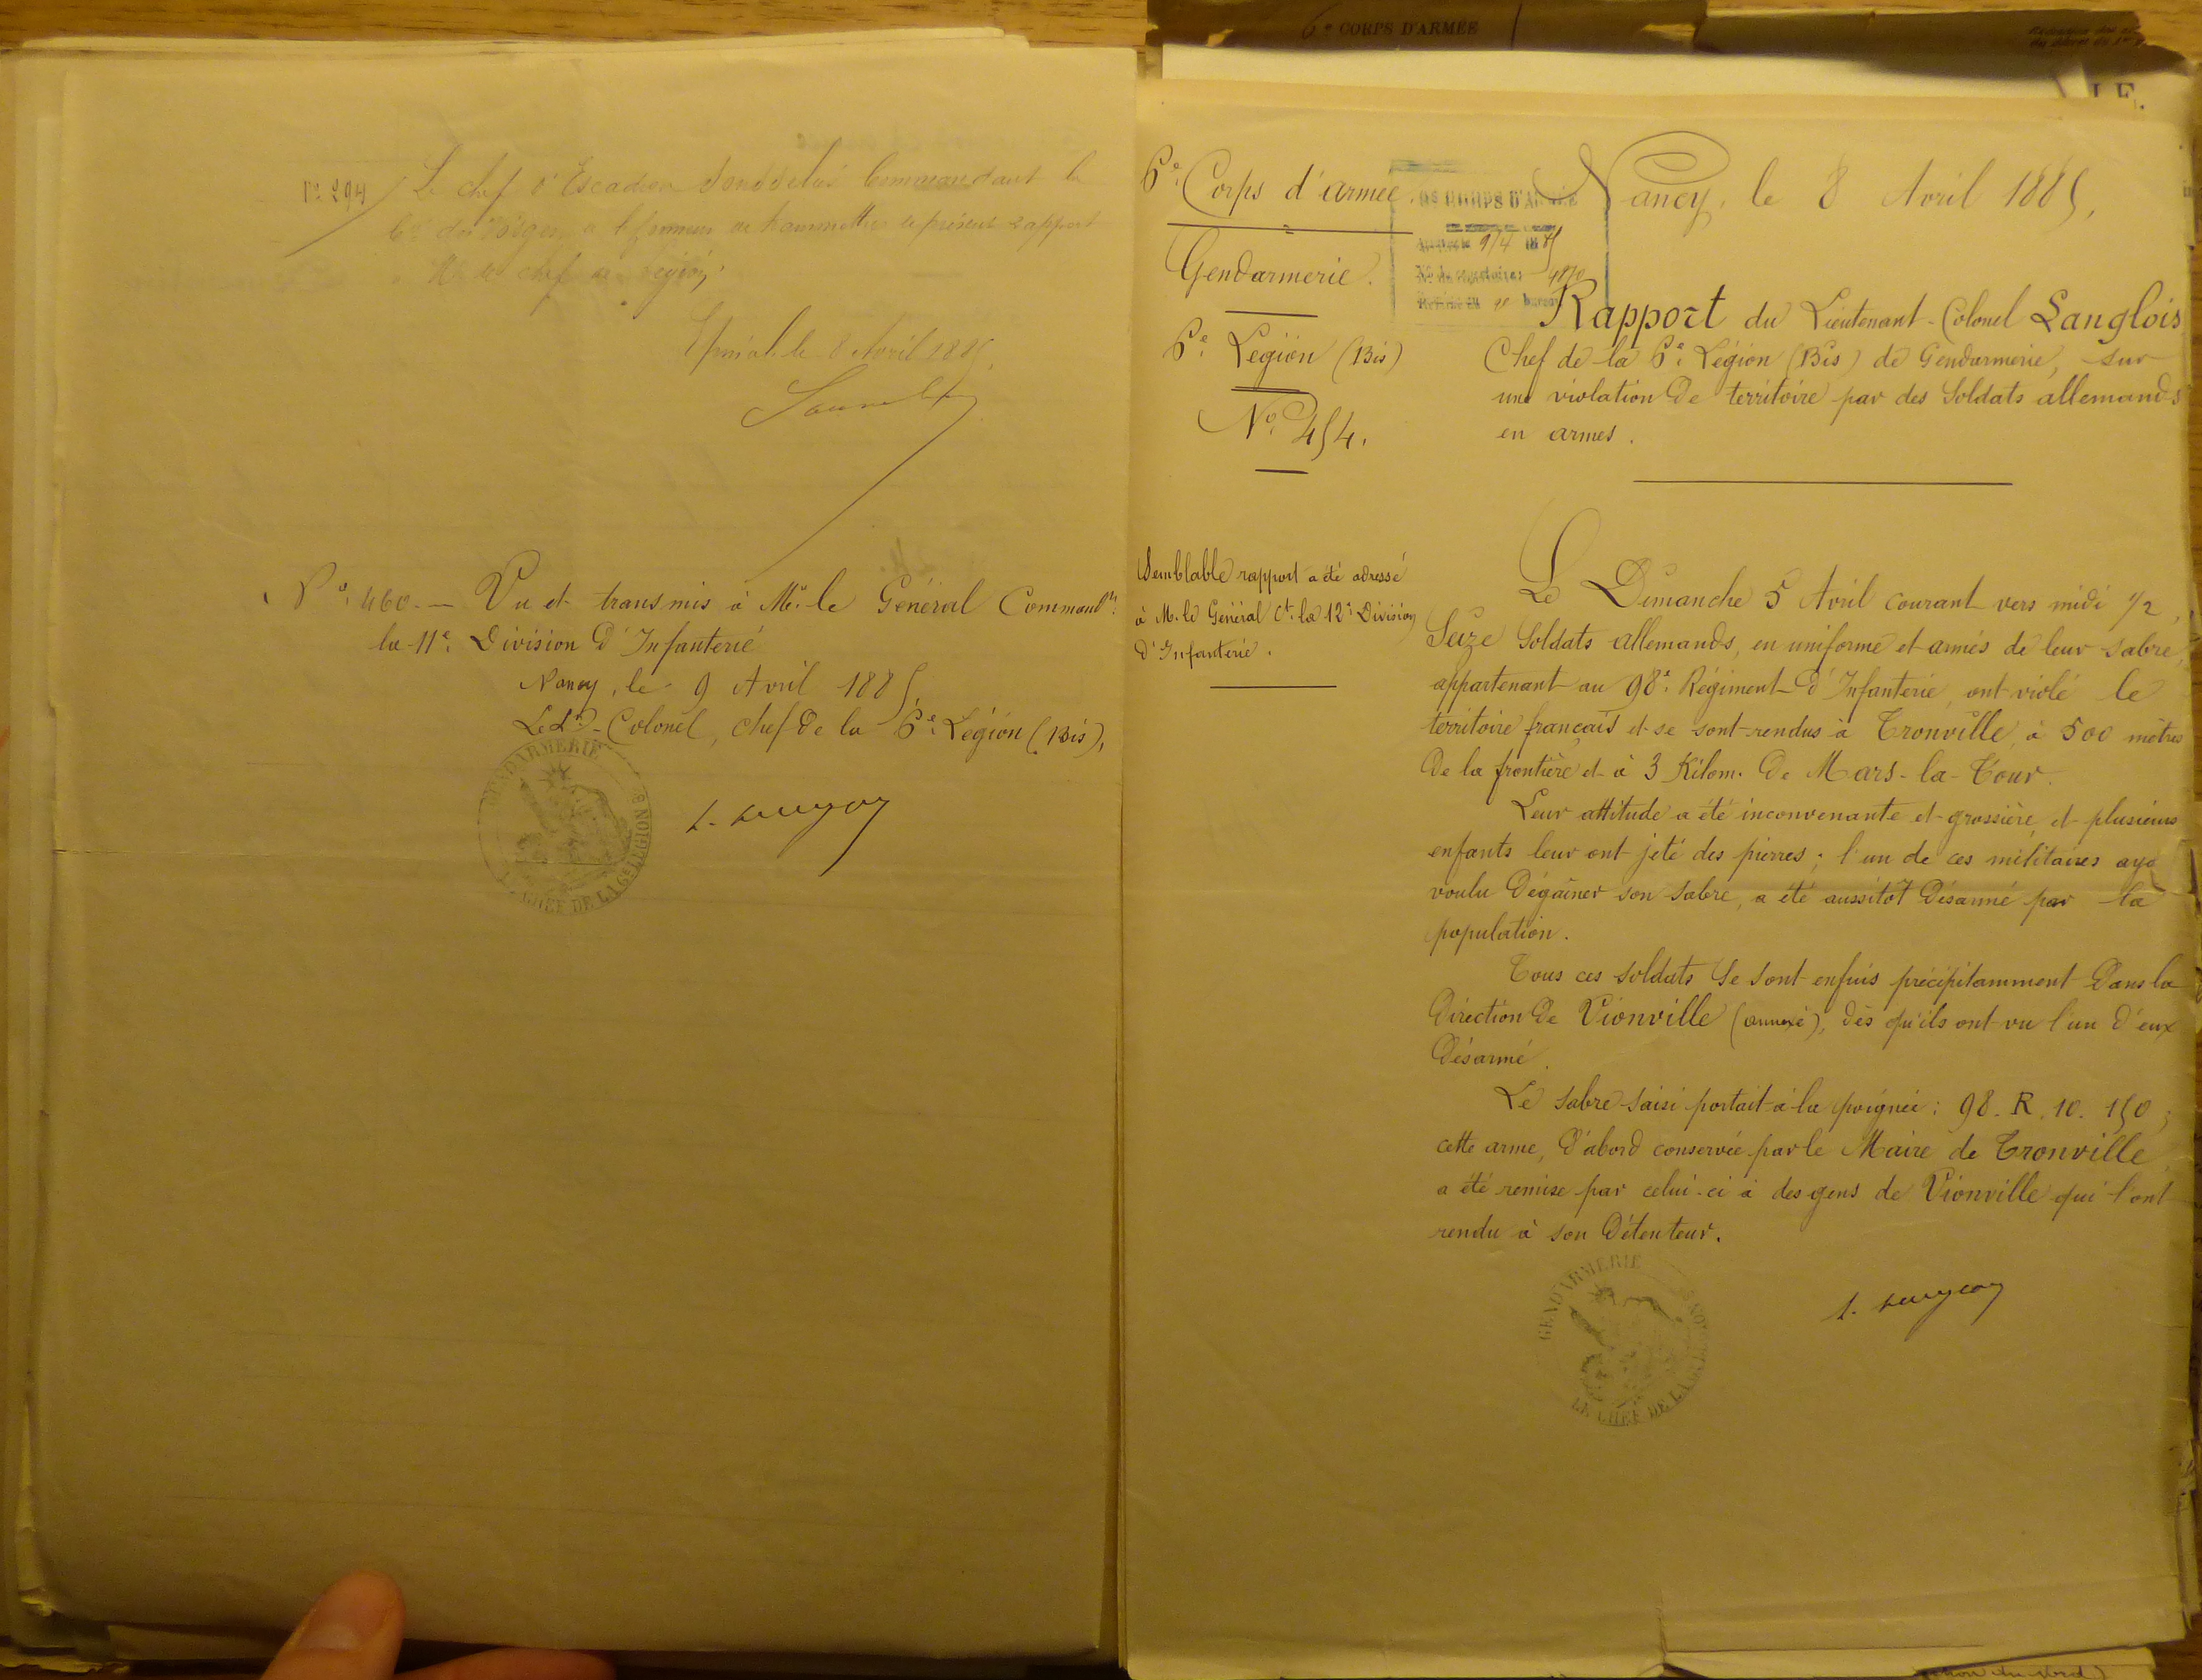 6e CORPS D'ARMÉE
LE.
No 294 Le chef d'Escadron Commandant la
Cie des Vosges a l'honneur de transmettre le présent rapport
à M. le chef de Légion
Epinal le 8 Avril 1885.
No 460. — Vu et transmis à Mr. le Général Commandt
la 11e Division d'Infanterie
Nancy, le 9 Avril 1885.
Le Lt-Colonel, chef de la 6e Légion (Bis),
GENDARMERIE
LE CHEF DE LA 6e LEGION Bis
6e Corps d'armée.
Gendarmerie.
6e Légion (Bis)
No 454.
6e CORPS D'ARMÉE
9/4 1885
No du répertoire: 4870
bureau
Nancy, le 8 Avril 1885,
Rapport du Lieutenant-Colonel Langlois
Chef de la 6e Légion (Bis) de Gendarmerie, sur
une violation de territoire par des Soldats allemands
en armes.
Semblable rapport a été adressé
à M. le Général Ct la 12e Division
d'Infanterie.
Le Dimanche 5 Avril courant vers midi 1/2,
Seize Soldats allemands, en uniforme et armés de leur sabre,
appartenant au 98e Régiment d'Infanterie, ont violé le
territoire français et se sont rendus à Tronville, à 500 mètres
de la frontière et à 3 Kilom. de Mars-la-Tour.
Leur attitude a été inconvenante et grossière, et plusieurs
enfants leur ont jeté des pierres; l'un de ces militaires aya
voulu dégainer son sabre, a été aussitôt désarmé par la
population.
Tous ces soldats se sont enfuis précipitamment dans la
direction de Vionville (annexé), dès qu'ils ont vu l'un d'eux
désarmé.
Le sabre saisi portait à la poignée: 98. R. 10. 150;
cette arme, d'abord conservée par le Maire de Tronville,
a été remise par celui-ci à des gens de Vionville qui l'ont
rendu à son détenteur.
GENDARMERIE
LE CHEF DE LA